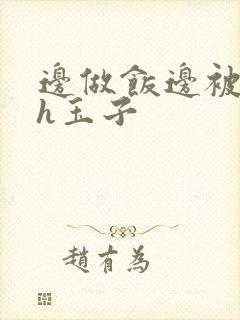 邊做飯邊被
h玉子
趙有為